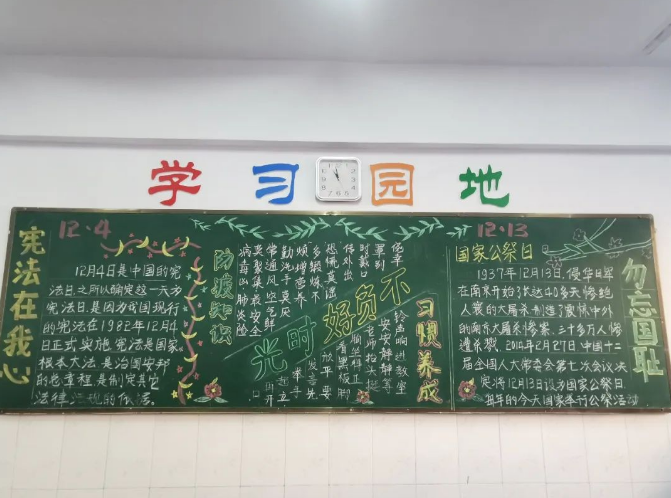 学习园地
宪法在我心
12.4
12月4日是中国的宪
法日,之所以确定这一天为
宪法日,是因为我国现行
的宪法在1982年12月4
日正式实施,宪法是国家
根本大法,是治国安邦
的总章程,是制定其它
法律法规的依法。
防疫知识
勤洗手
常通风 空气鲜
病毒出 肺炎险
不负好时光
习惯养成
铃声响 进教室
12.13
国家公祭日
1937年12月13日,侵华日军
在南京开始长达40多天惨绝
人寰的大屠杀,制造了震惊中外
的南京大屠杀惨案,三十多万人惨
遭杀戮。2014年2月27日,中国十二
届全国人大常委会第七次会议决
定将12月13日设为国家公祭日
每年的今天国家举行公祭活动
勿忘国耻